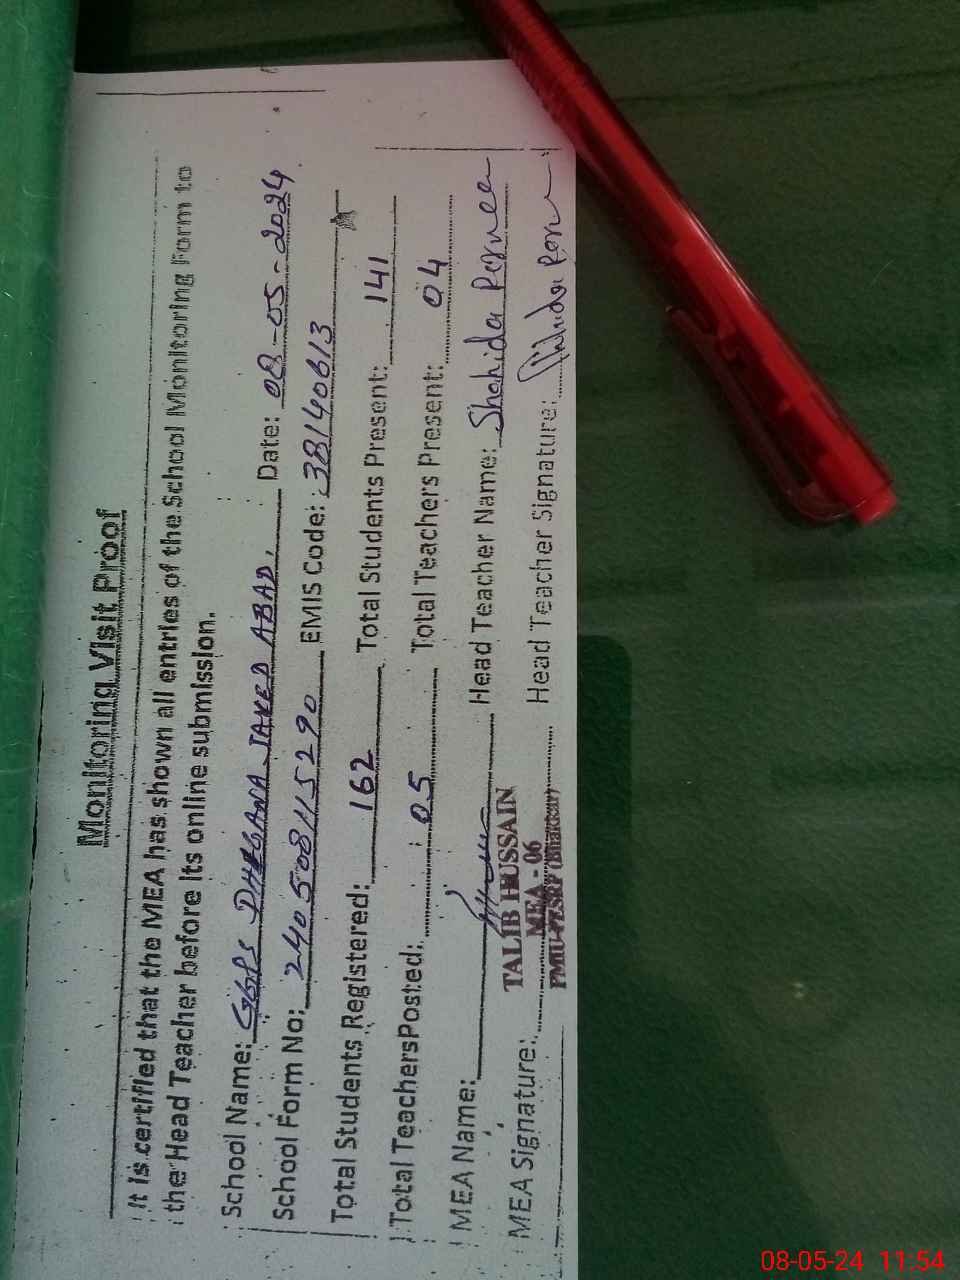 Monitoring Visit Proof
It is certified that the MEA has shown all entries of the School Monitoring Form to
the Head Teacher before its online submission.
School Name: GGPS DHEGANA JAVED ABAD, Date: 08-05-2024
School Form No: 240508115290 EMIS Code: 38140613
Total Students Registered: 162 Total Students Present: 141
Total Teachers Posted: 05 Total Teachers Present: 04
MEA Name: Head Teacher Name: Shahida Perveen
TALIB HUSSAIN
MEA - 06
PMIU-PESRP (Bhakkar)
MEA Signature: Head Teacher Signature:
08-05-24 11:54